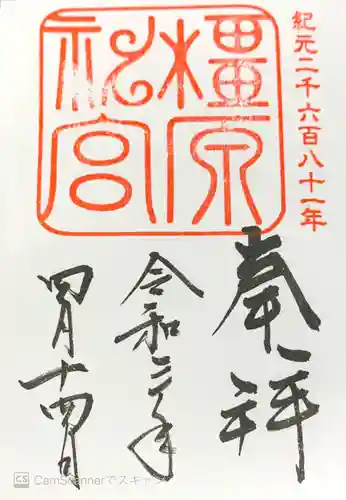 紀元二千六百八十一年
橿原
神宮
奉拝
令和三年
四月十四日
CS CamScannerでスキャン